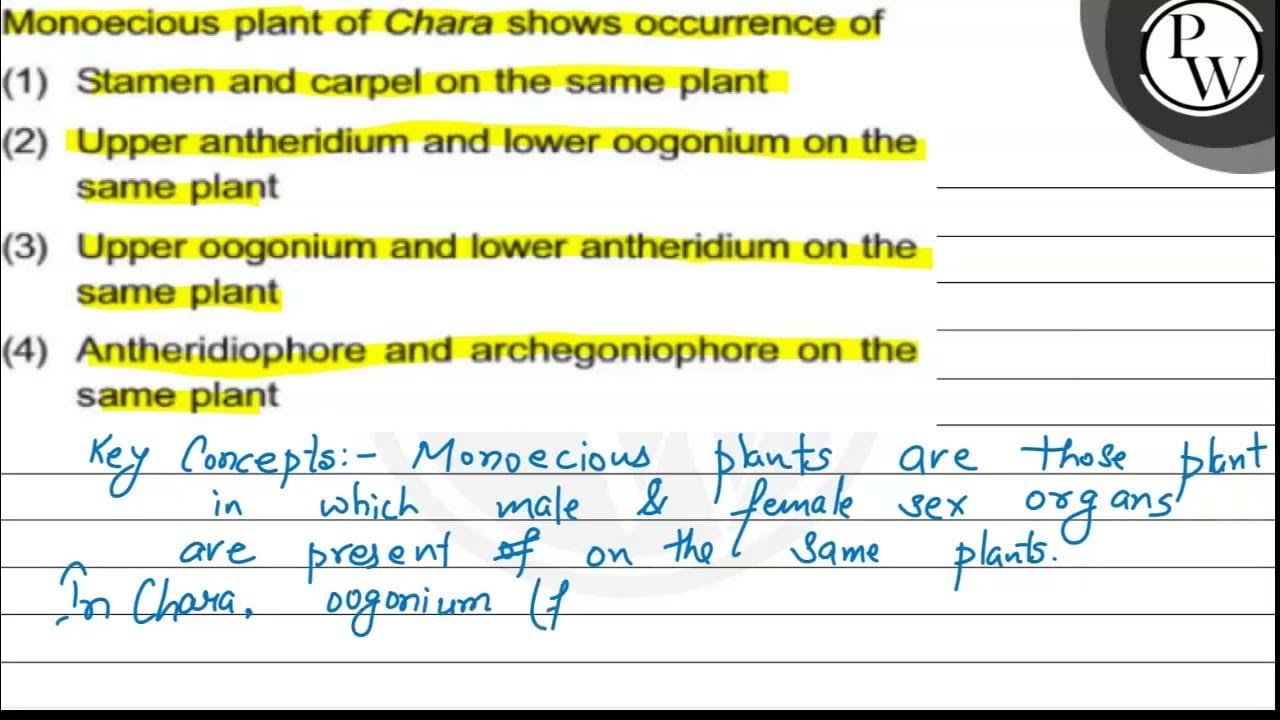 Monoecious plant of Chara shows occurrence of
(1) Stamen and carpel on the same plant
(2) Upper antheridium and lower oogonium on the
same plant
(3) Upper oogonium and lower antheridium on the
same plant
(4) Antheridiophore and archegoniophore on the
same plant
PW
Key Concepts:- Monoecious plants are those plant
in which male & female sex organs
are present of on the same plants.
In Chara, oogonium (f